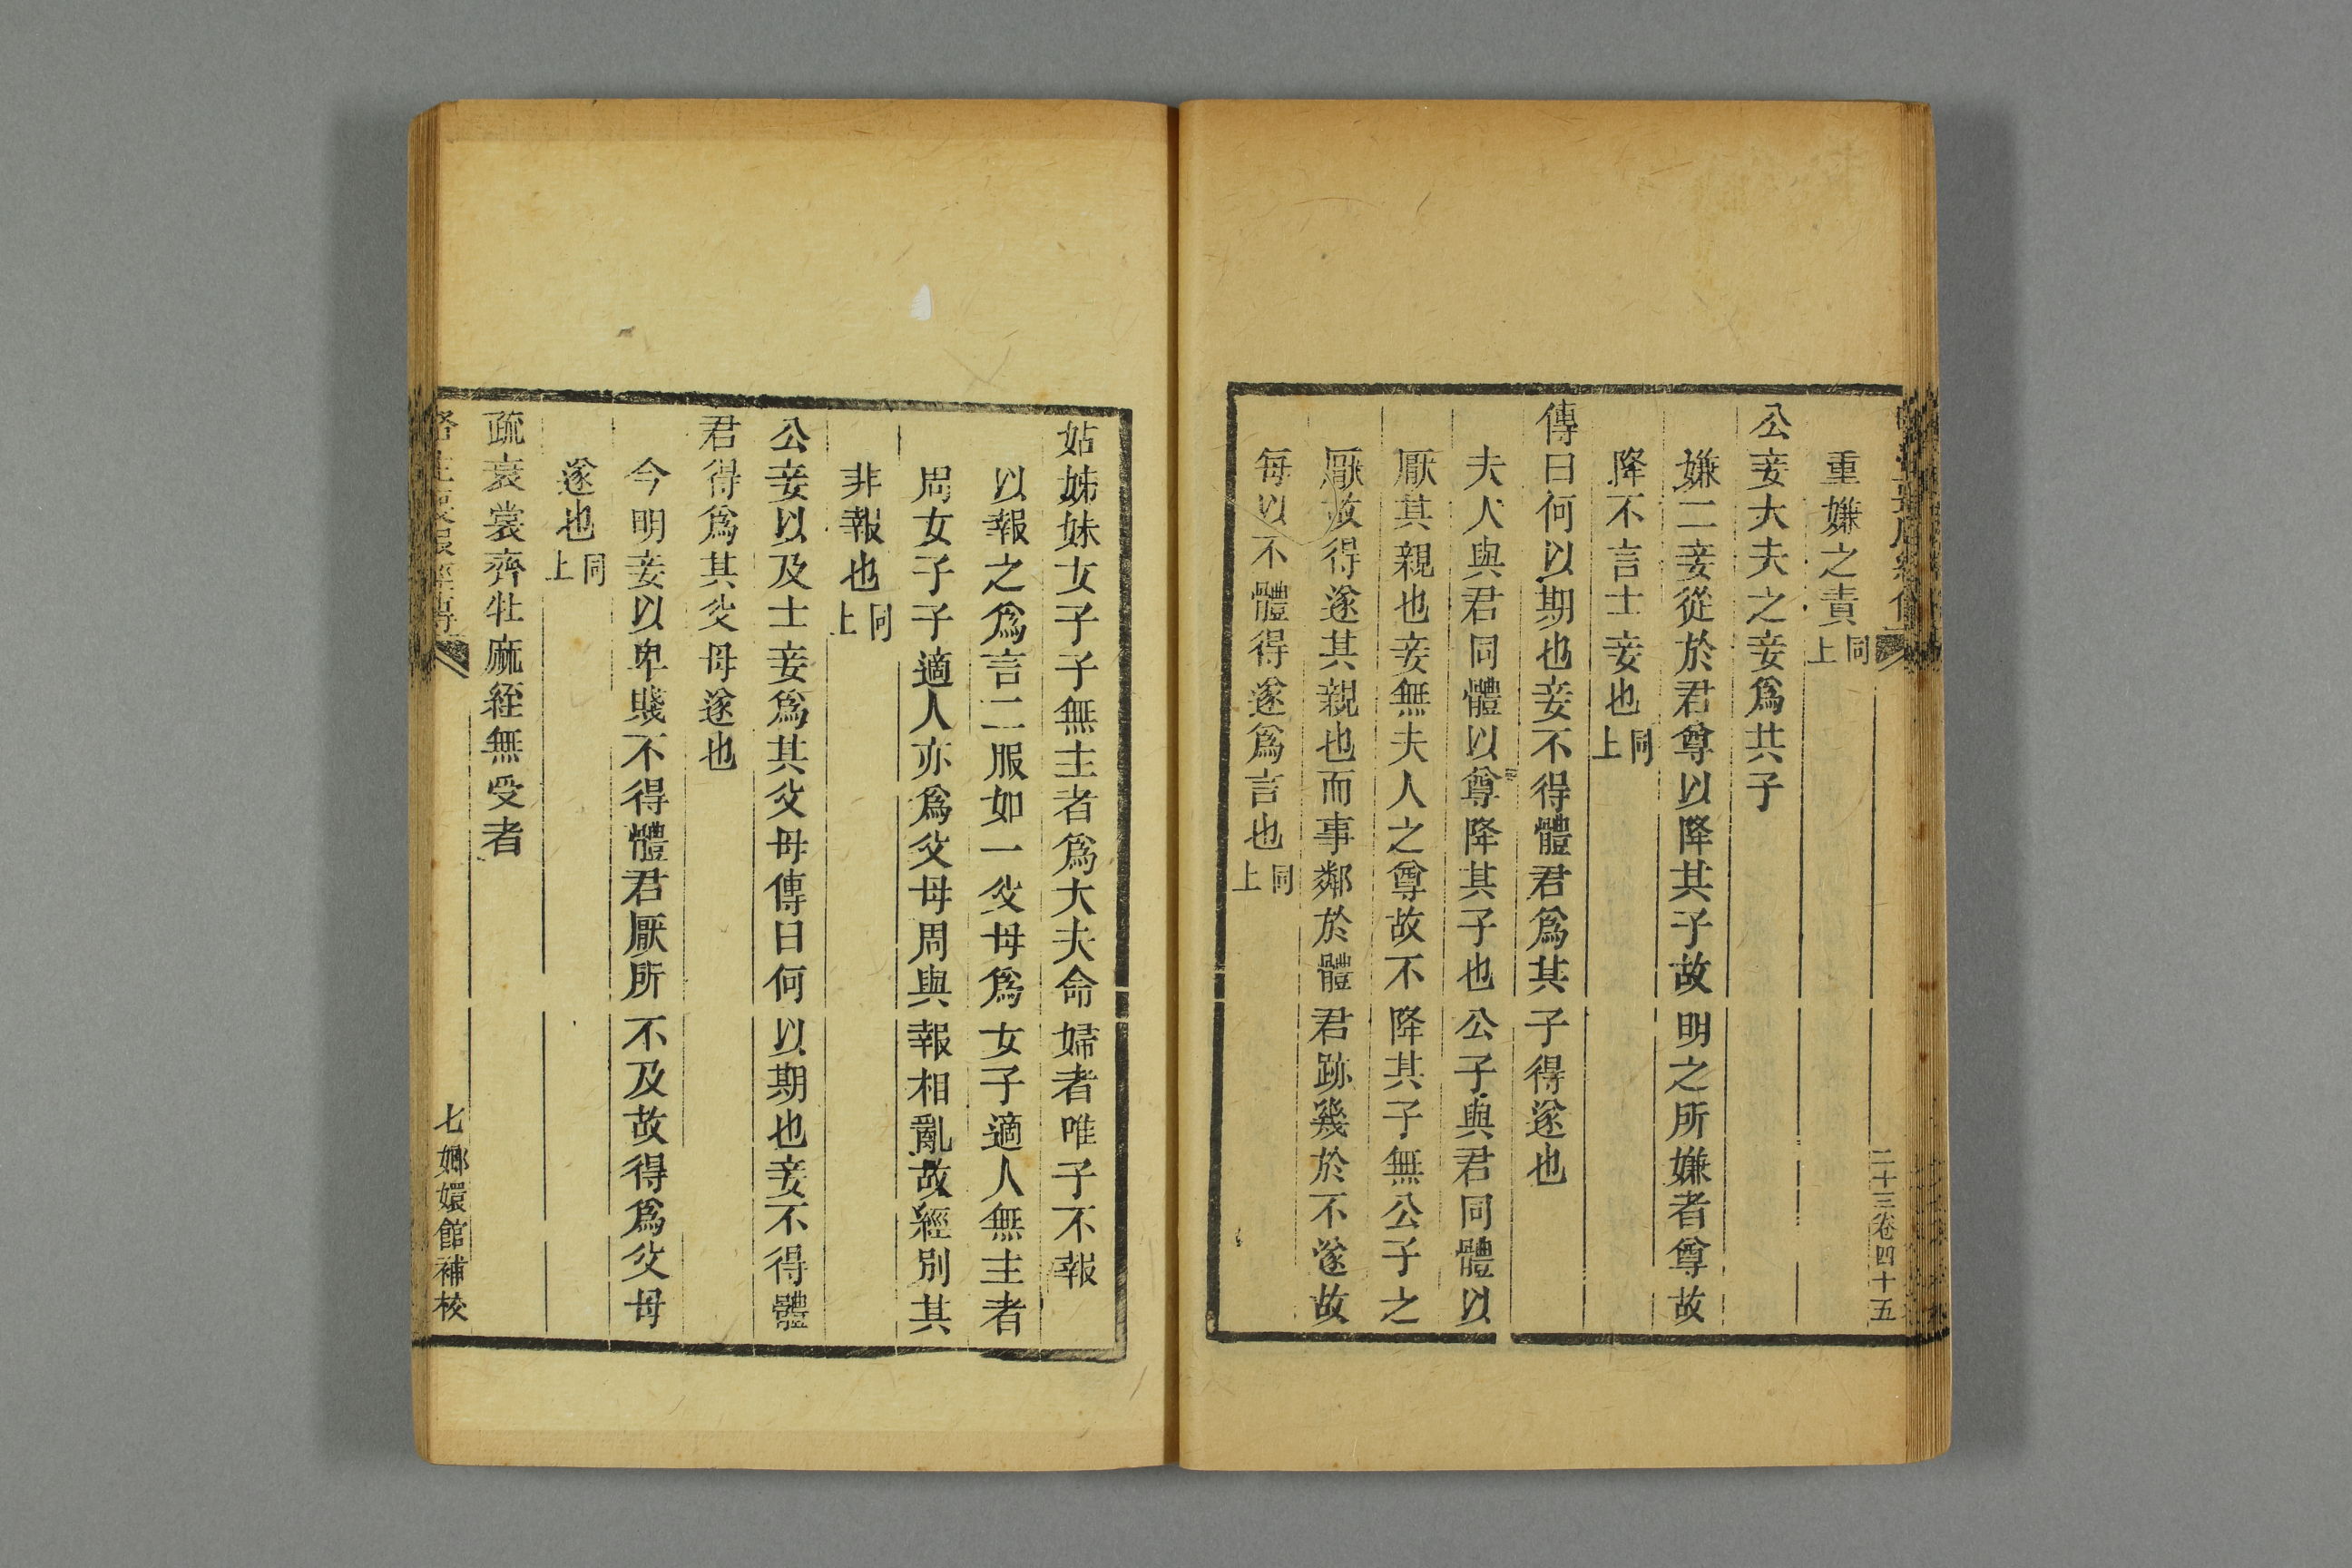 二十三卷四十五
重嫌之責同上
公妾大夫之妾爲其子
嫌二妾從於君尊以降其子故明之所嫌者尊故
降不言士妾也同上
傳曰何以期也妾不得體君爲其子得遂也
夫人與君同體以尊降其子也公子與君同體以
厭其親也妾無夫人之尊故不降其子無公子之
厭故得遂其親也而事鄰於體君跡幾於不遂故
每以不體得遂爲言也同上
姑姊妹女子子無主者爲大夫命婦者唯子不報
以報之爲言二服如一父母爲女子適人無主者
周女子子適人亦爲父母周與報相亂故經別其
非報也同上
公妾以及士妾爲其父母傳曰何以期也妾不得體
君得爲其父母遂也
今明妾以卑賤不得體君厭所不及故得爲父母
遂也同上
疏衰裳齊牡麻絰無受者
七嫏嬛館補校